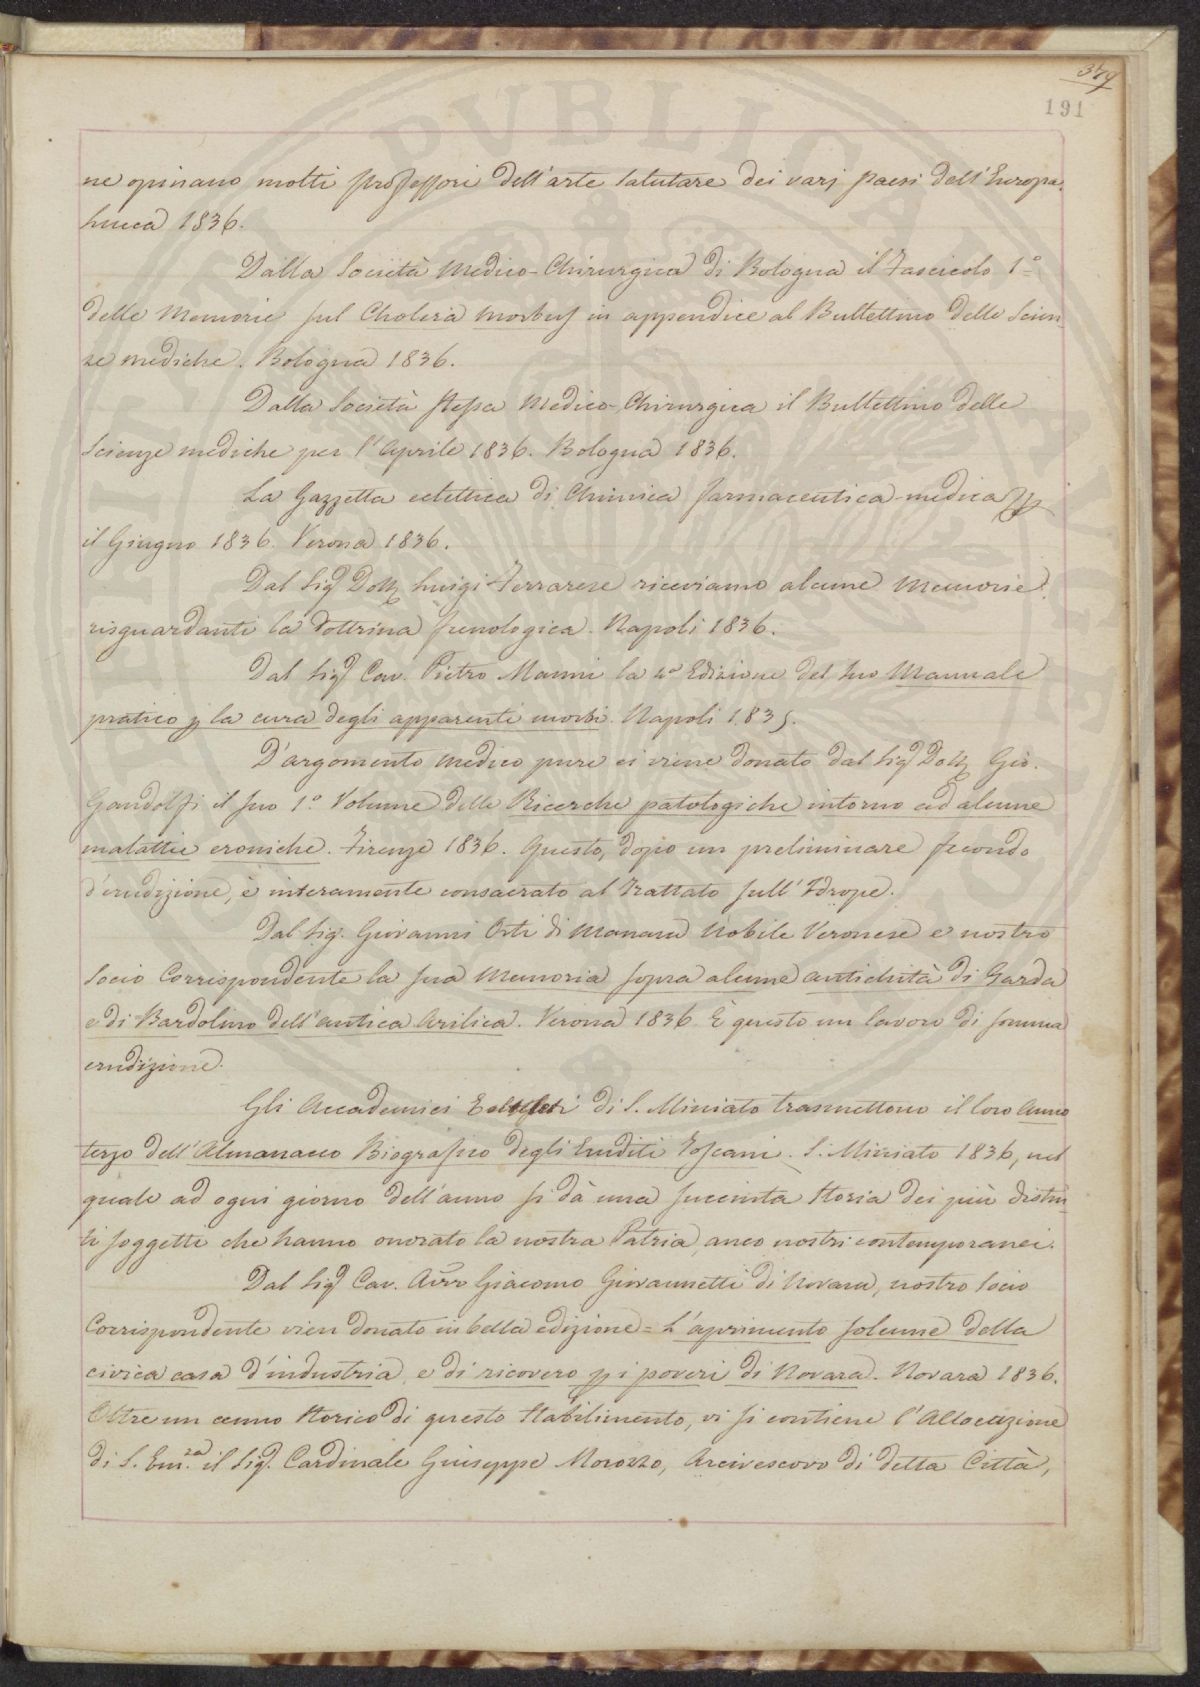 379
191
ne opinano molti professori dell'arte salutare dei varj paesi dell'Europa.
Lucca 1836.
Dalla Società Medico-Chirurgica di Bologna il Fascicolo 1°
delle Memorie sul Cholera morbus in appendice al Bullettino delle Scien-
ze mediche. Bologna 1836.
Dalla Società stessa Medico-Chirurgica il Bullettino delle
Scienze mediche per l'Aprile 1836. Bologna 1836.
La Gazzetta eclettica di Chimica farmaceutica-medica
il Giugno 1836. Verona 1836.
Dal Sig. Dott. Luigi Ferrarese riceviamo alcune Memorie
risguardanti la dottrina frenologica. Napoli 1836.
Dal Sig. Cav. Pietro Manni la 4a Edizione del suo Manuale
pratico p la cura degli apparenti morti. Napoli 1835.
D'argomento medico pure ci viene donato dal Sig. Dott. Gio.
Gandolfi il suo 1.° Volume delle Ricerche patologiche intorno ad alcune
malattie croniche. Firenze 1836. Questo, dopo un preliminare fecondo
d'erudizione, è interamente consacrato al Trattato sull'Idrope.
Dal Sig. Giovanni Orti di Manara Nobile Veronese e nostro
Socio Corrispondente la sua Memoria sopra alcune antichità di Garda
e di Bardolino dell'antica Arilica. Verona 1836. È questo un lavoro di somma
erudizione.
Gli Accademici Euteleti di S. Miniato trasmettono il loro Anno
terzo dell'Almanacco Biografico degli Eruditi Toscani. S. Miniato 1836, nel
quale ad ogni giorno dell'anno si dà una succinta Storia dei più distin-
ti soggetti che hanno onorato la nostra Patria, anco nostri contemporanei.
Dal Sig. Cav. Avvo Giacomo Giovannetti di Novara, nostro Socio
Corrispondente vien donato in bella edizione = L'aprimento solenne della
civica casa d'industria, e di ricovero p i poveri di Novara. Novara 1836.
Oltre un cenno storico di questo Stabilimento, vi si contiene l'Allocuzione
di S. Em.za il Sig. Cardinale Giuseppe Morozzo, Arcivescovo di detta Città,